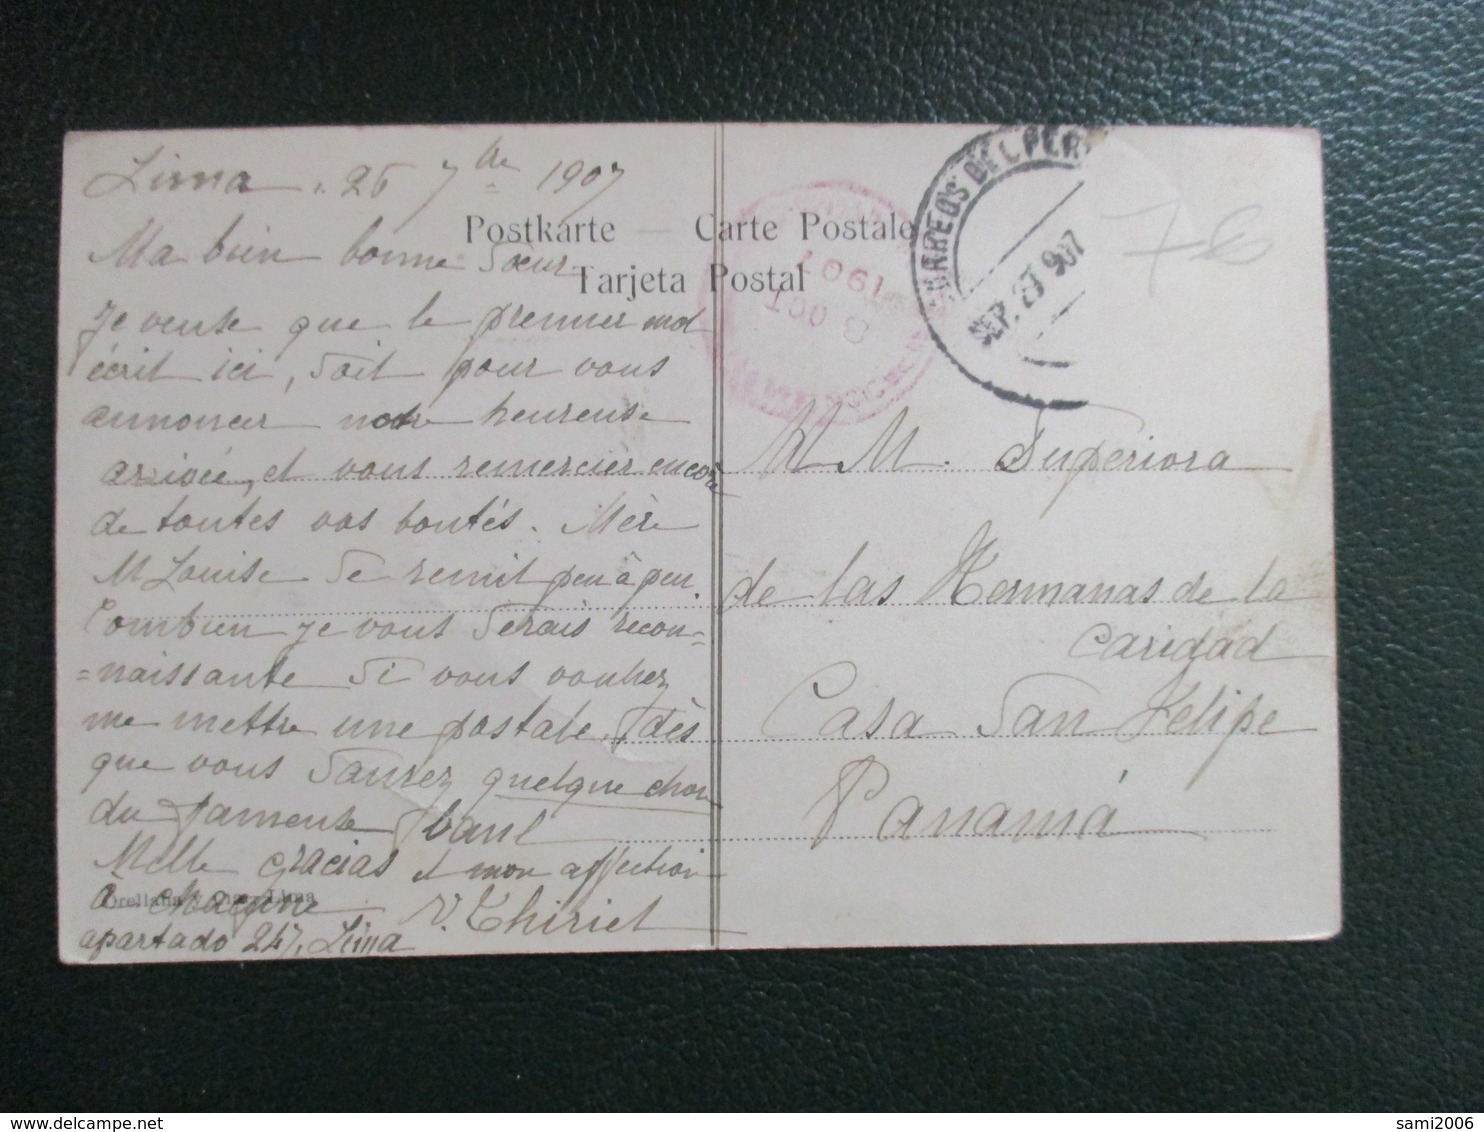 Lima, 26 7bre 1907
Postkarte — Carte Postale
Tarjeta Postal
Ma bien bonne Sœur
Je veuse que le premier mot
écrit ici, soit pour vous
annoncer notre heureuse
arrivée, et vous remercier encore
de toutes vos bontés. Mère
M Louise se remit peu à peu.
Combien je vous serais recon-
-naissante si vous vouliez
me mettre une postale, dès
que vous saurez quelque chose
du fameuse
Mille gracias et mon affection
à V. Thiriet
apartado 247, Lima
Orellana y Lima
CORREOS DEL PER
SEP. 27 907
8 OCT
1907
76
M. M. Superiora
de las Hermanas de la
Caridad
Casa San Felipe
Panamá
sami2006